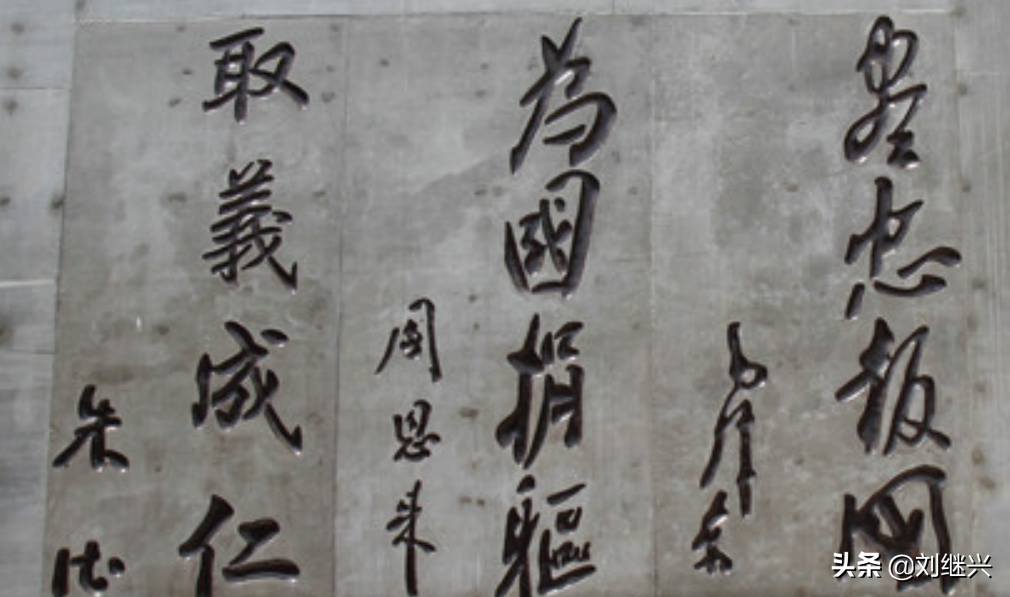 尽忠报国
毛泽东
為國捐軀
周恩来
取義成仁
朱德
头条 @刘继兴